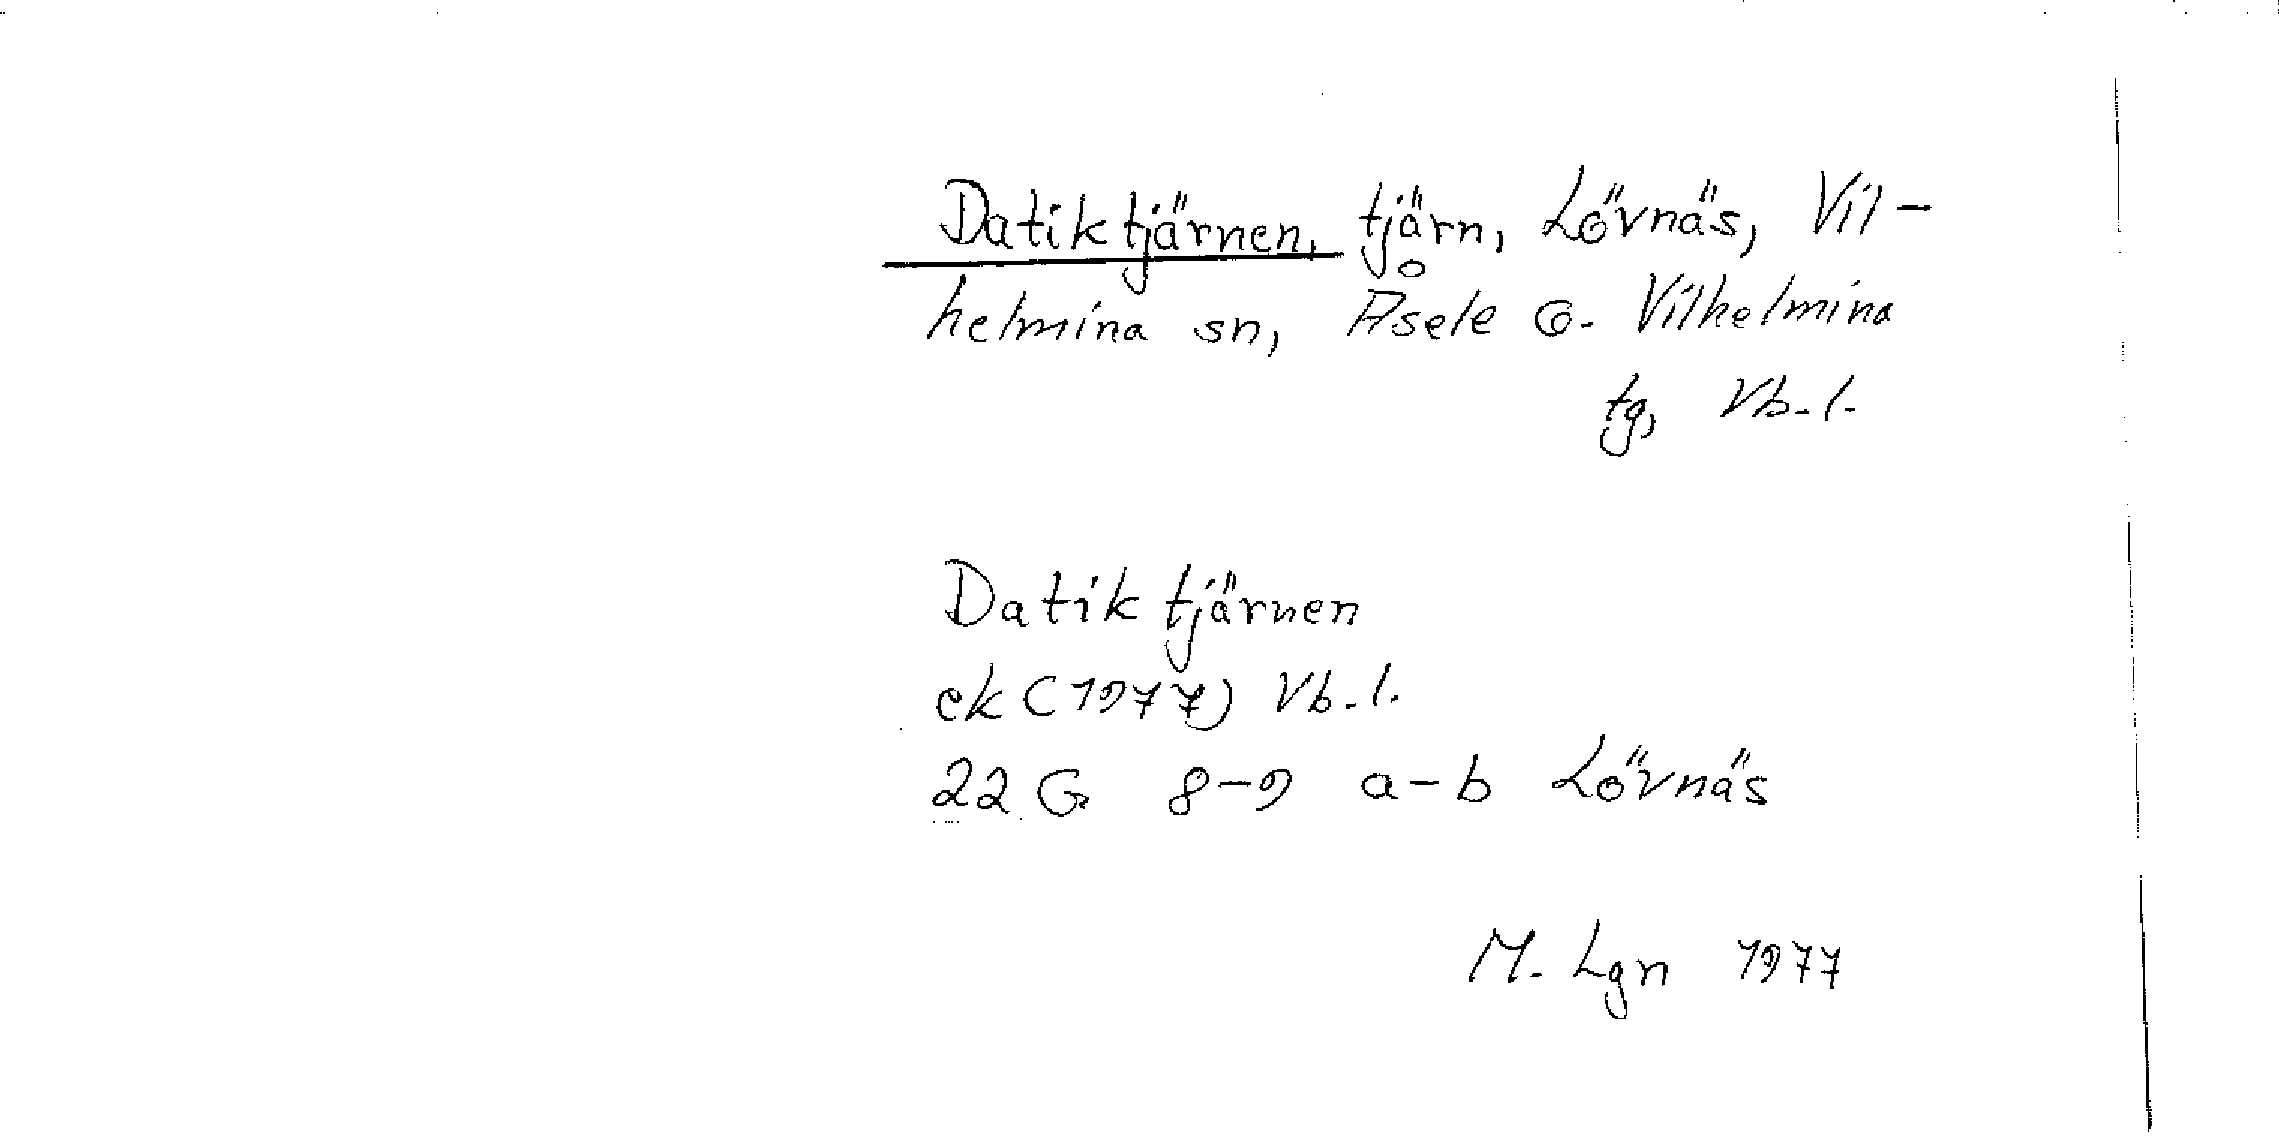 Datiktjärnen, tjärn, Lövnäs, Vil-
helmina sn, Åsele o. Vilhelmina
tg, Vb.l.
Datiktjärnen
ek (1977) Vb.l.
22 G 8-9 a-b Lövnäs
M. Lgn 1977